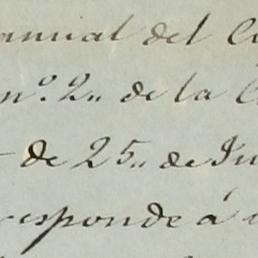 anual del C
nº. 2„ de la C
- de 25„ de Ju
responde á